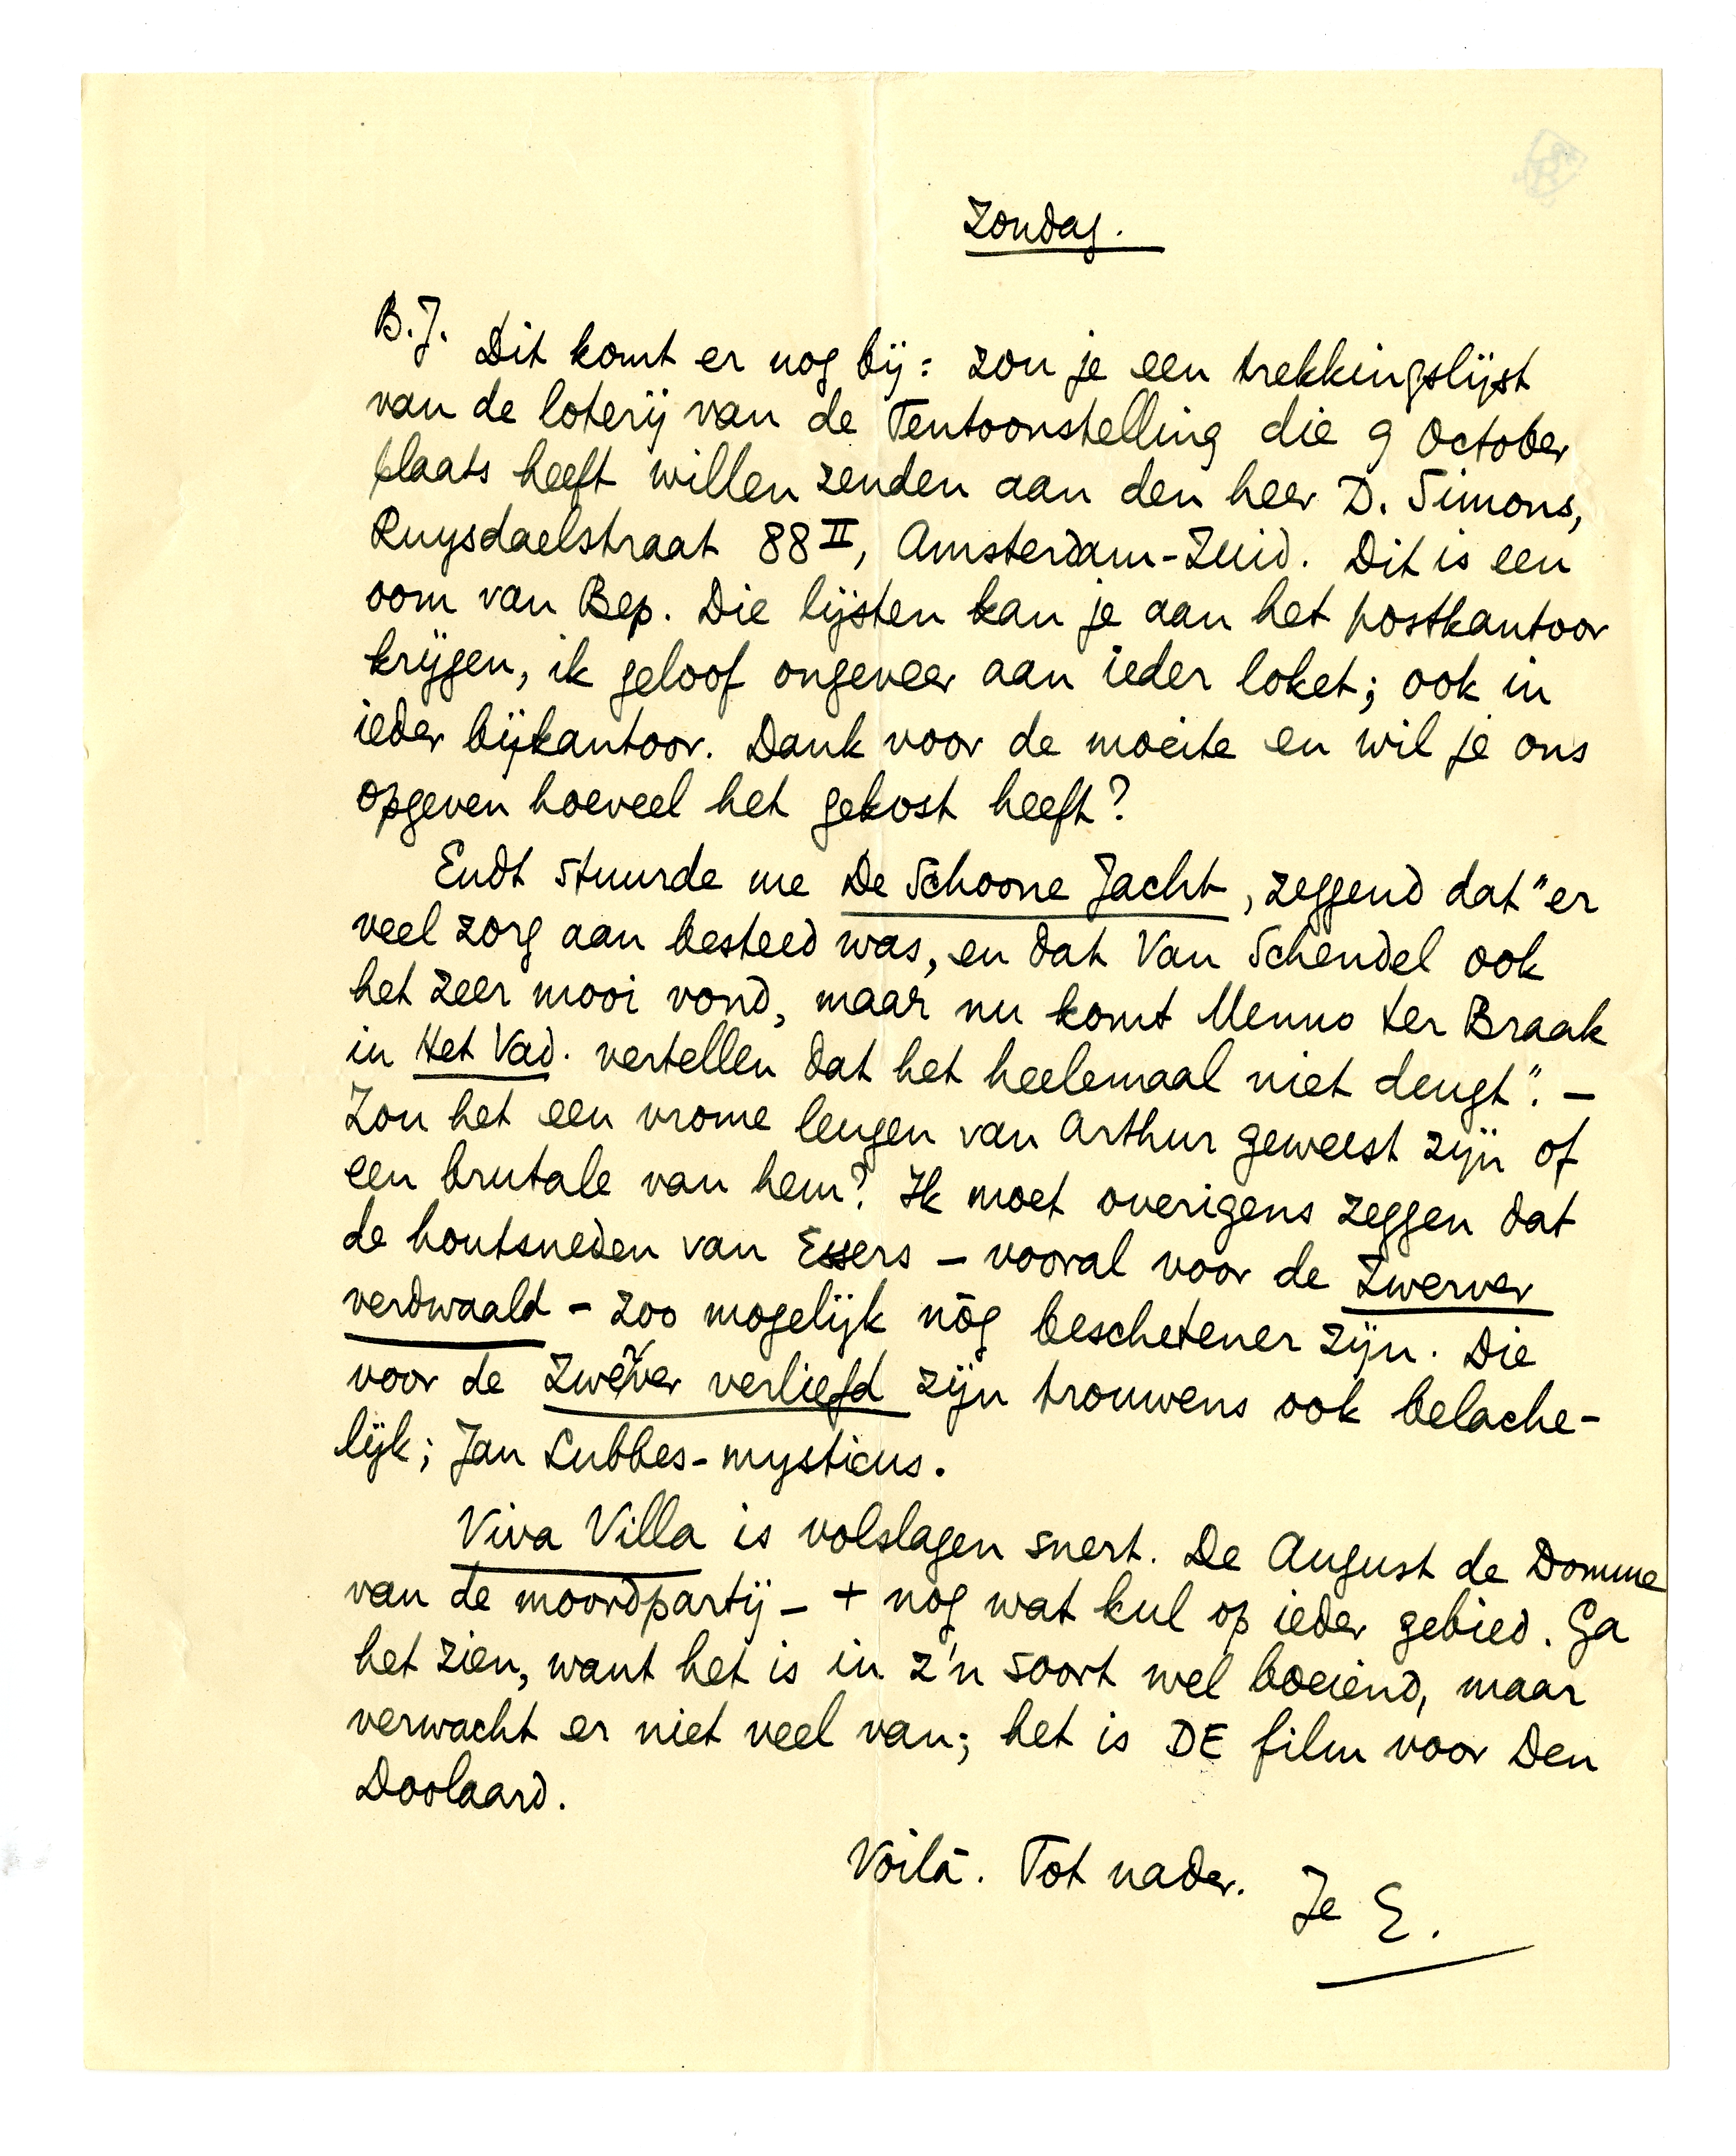 Zondag.
B.J. Dit komt er nog bij: zou je een trekkingslijst
van de loterij van de Tentoonstelling die 9 October
plaats heeft willen zenden aan den heer D. Simons,
Ruysdaelstraat 88 II, Amsterdam-Zuid. Dit is een
oom van Bep. Die lijsten kan je aan het postkantoor
krijgen, ik geloof ongeveer aan ieder loket; ook in
ieder bijkantoor. Dank voor de moeite en wil je ons
opgeven hoeveel het gekost heeft?
Endt stuurde me De Schoone Jacht, zeggend dat "er
veel zorg aan besteed was, en dat Van Schendel ook
het zeer mooi vond, maar nu komt Menno ter Braak
in Het Vad. vertellen dat het heelemaal niet deugt". –
Zou het een vrome leugen van Arthur geweest zijn of
een brutale van hem? Ik moet overigens zeggen dat
de houtsneden van Essers – vooral voor de Zwerver
verdwaald – zoo mogelijk nòg beschetener zijn. Die
voor de Zwerver verliefd zijn trouwens ook belache-
lijk; Jan Lubbes-mysticus.
Viva Villa is volslagen snert. De August de Domme
van de moordpartij – + nog wat kul op ieder gebied. Ga
het zien, want het is in z'n soort wel boeiend, maar
verwacht er niet veel van; het is DE film voor Den
Doolaard.
Voilà. Tot nader.
Je E.